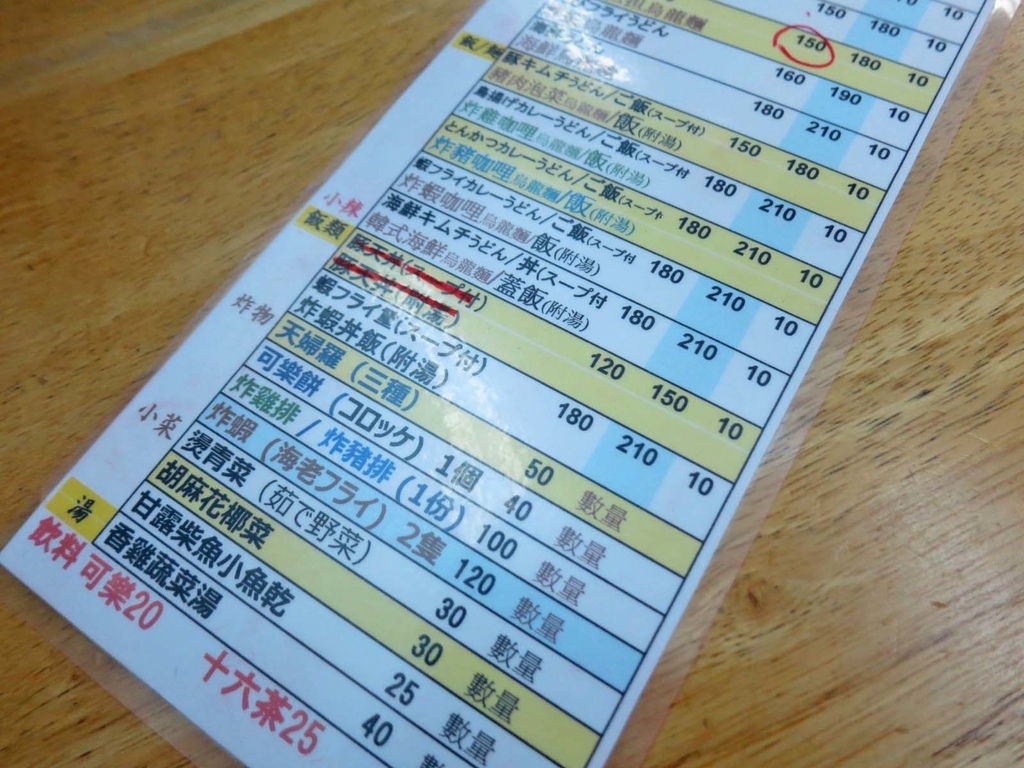 150 170 10
烏龍麵
フライうどん 150 180 10
烏龍麵 160 190 10
海鮮
飯/麵
豚キムチうどん/ご飯(スープ付) 180 210 10
豬肉泡菜烏龍麵/飯(附湯) 150 180 10
鳥揚げカレーうどん/ご飯(スープ付
炸雞咖哩烏龍麵/飯(附湯) 180 210 10
とんかつカレーうどん/ご飯(スープ付
炸豬咖哩烏龍麵/飯(附湯) 180 210 10
蝦フライカレーうどん/ご飯(スープ付
炸蝦咖哩烏龍麵/飯(附湯) 180 210 10
小辣
海鮮キムチうどん/丼(スープ付
韓式海鮮烏龍麵/蓋飯(附湯) 180 210 10
飯類
豚天丼(スープ付)
豚天丼(附湯) 120 150 10
蝦フライ丼(スープ付)
炸蝦丼飯(附湯) 180 210 10
炸物
天婦羅 (三種) 50 數量
可樂餅 (コロッケ) 1個 40 數量
炸雞排 / 炸豬排 (1份) 100 數量
炸蝦 (海老フライ) 2隻 120 數量
小菜
燙青菜 (茹で野菜) 30 數量
胡麻花椰菜 30 數量
甘露柴魚小魚乾 25 數量
湯
香雞蔬菜湯 40 數量
飲料可樂20
十六茶25